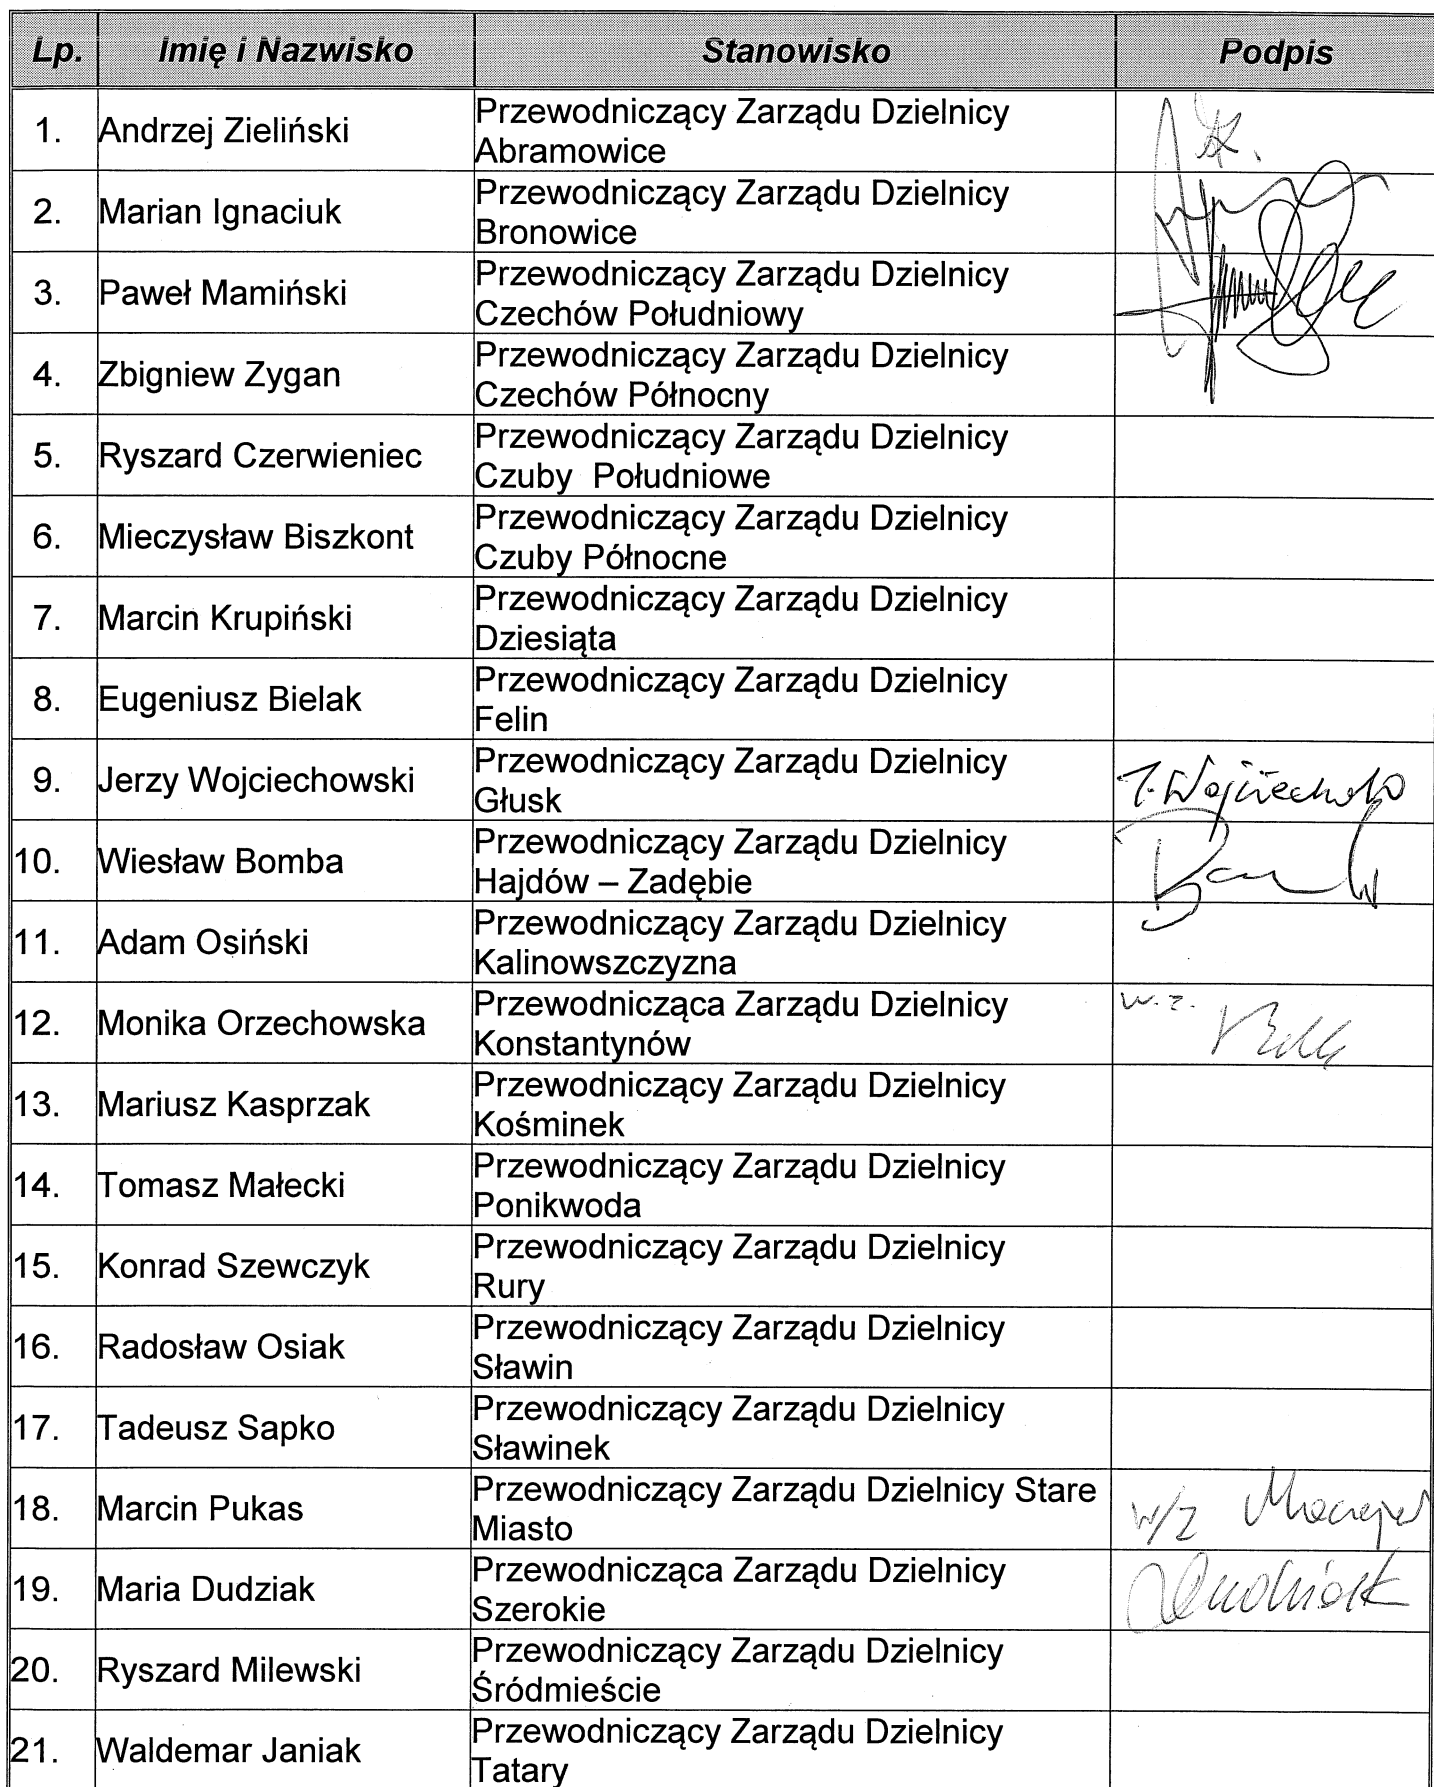 Lp. Imię i Nazwisko Stanowisko Podpis
1. Andrzej Zieliński Przewodniczący Zarządu Dzielnicy
Abramowice
2. Marian Ignaciuk Przewodniczący Zarządu Dzielnicy
Bronowice
3. Paweł Mamiński Przewodniczący Zarządu Dzielnicy
Czechów Południowy
4. Zbigniew Zygan Przewodniczący Zarządu Dzielnicy
Czechów Północny
5. Ryszard Czerwieniec Przewodniczący Zarządu Dzielnicy
Czuby Południowe
6. Mieczysław Biszkont Przewodniczący Zarządu Dzielnicy
Czuby Północne
7. Marcin Krupiński Przewodniczący Zarządu Dzielnicy
Dziesiąta
8. Eugeniusz Bielak Przewodniczący Zarządu Dzielnicy
Felin
9. Jerzy Wojciechowski Przewodniczący Zarządu Dzielnicy
Głusk
10. Wiesław Bomba Przewodniczący Zarządu Dzielnicy
Hajdów – Zadębie
11. Adam Osiński Przewodniczący Zarządu Dzielnicy
Kalinowszczyzna
12. Monika Orzechowska Przewodnicząca Zarządu Dzielnicy w.z.
Konstantynów
13. Mariusz Kasprzak Przewodniczący Zarządu Dzielnicy
Kośminek
14. Tomasz Małecki Przewodniczący Zarządu Dzielnicy
Ponikwoda
15. Konrad Szewczyk Przewodniczący Zarządu Dzielnicy
Rury
16. Radosław Osiak Przewodniczący Zarządu Dzielnicy
Sławin
17. Tadeusz Sapko Przewodniczący Zarządu Dzielnicy
Sławinek
18. Marcin Pukas Przewodniczący Zarządu Dzielnicy Stare w/z
Miasto
19. Maria Dudziak Przewodnicząca Zarządu Dzielnicy
Szerokie
20. Ryszard Milewski Przewodniczący Zarządu Dzielnicy
Śródmieście
21. Waldemar Janiak Przewodniczący Zarządu Dzielnicy
Tatary